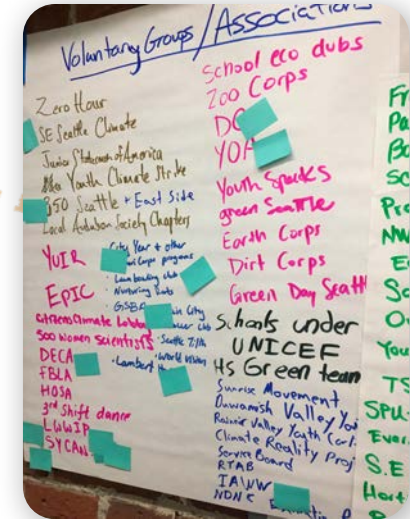 Voluntary Groups / Associations
Zero Hour
SE Seattle Climate
Junior Statesmen of America
Youth Climate Strike
350 Seattle + East Side
Local Audubon Society Chapters
YUIR
EPIC
Citizens Climate Lobby
500 Women Scientists
DECA
FBLA
HOSA
3rd Shift dance
LWWIP
SYCAN
City Year + other
Corps programs
Lawn bowling club
Nurturing
GSBA
in City
Club
Seattle
World Vision
Lambert H
School eco clubs
Zoo Corps
DC
YOA
Youth Speaks
green Seattle
Earth Corps
Dirt Corps
Green Day Seatt
Schools under
UNICEF
HS Green team
Sunrise Movement
Duwamish Valley You
Rainier Valley Youth
Climate Reality Proj
Service Board
RTAB
IAWW
NDNC
Fr
Pa
Bo
Sc
Pro
NW
E
So
O
You
TS
SPU
Ever
S.E
Hort